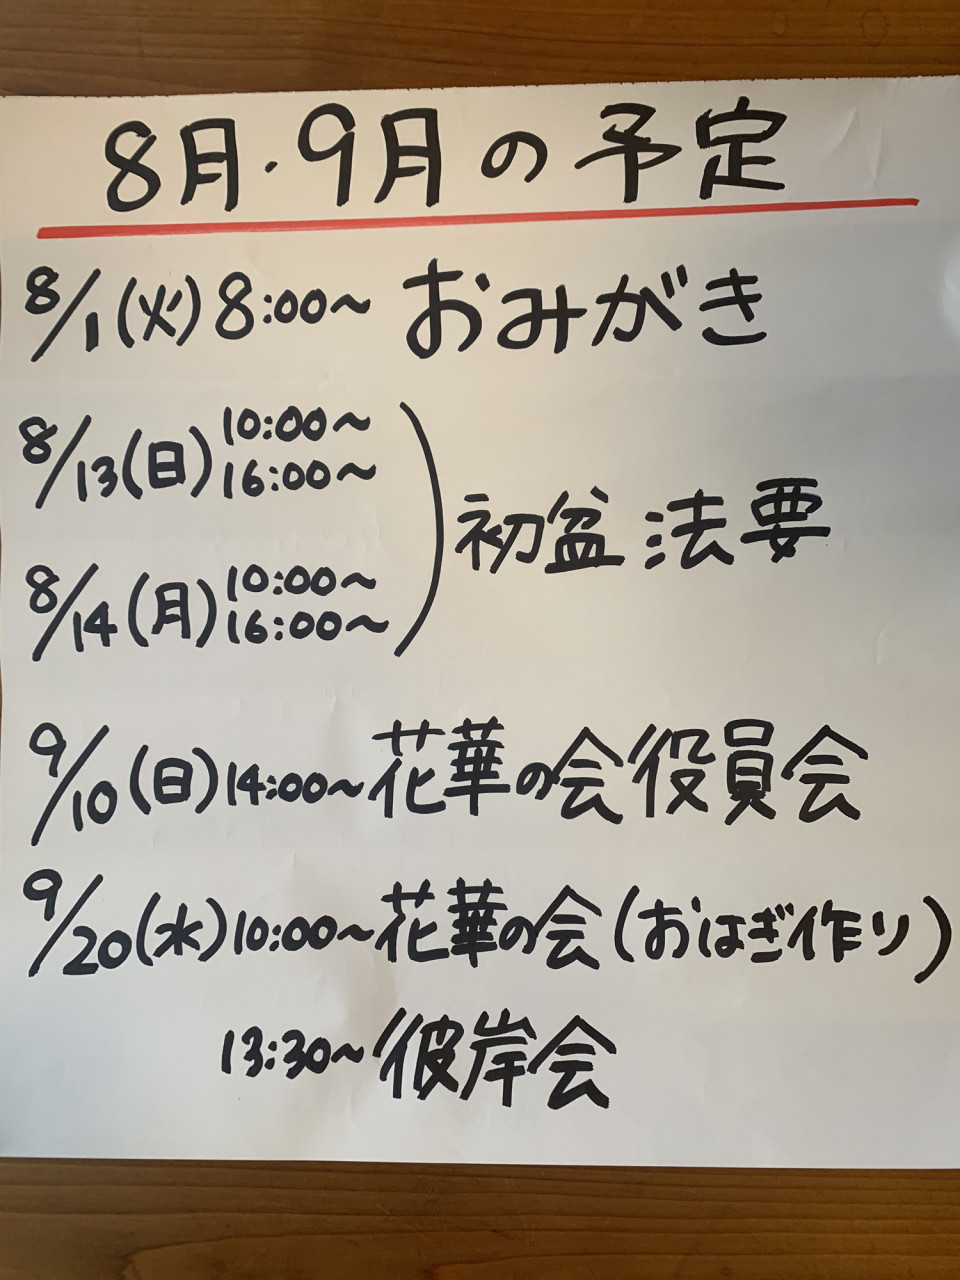 8月・9月の予定
8/1(火) 8:00〜 おみがき
8/13(日) 10:00〜
16:00〜
初盆法要
8/14(月) 10:00〜
16:00〜
9/10(日) 14:00〜 花華の会役員会
9/20(水) 10:00〜 花華の会(おはぎ作り)
13:30〜 彼岸会